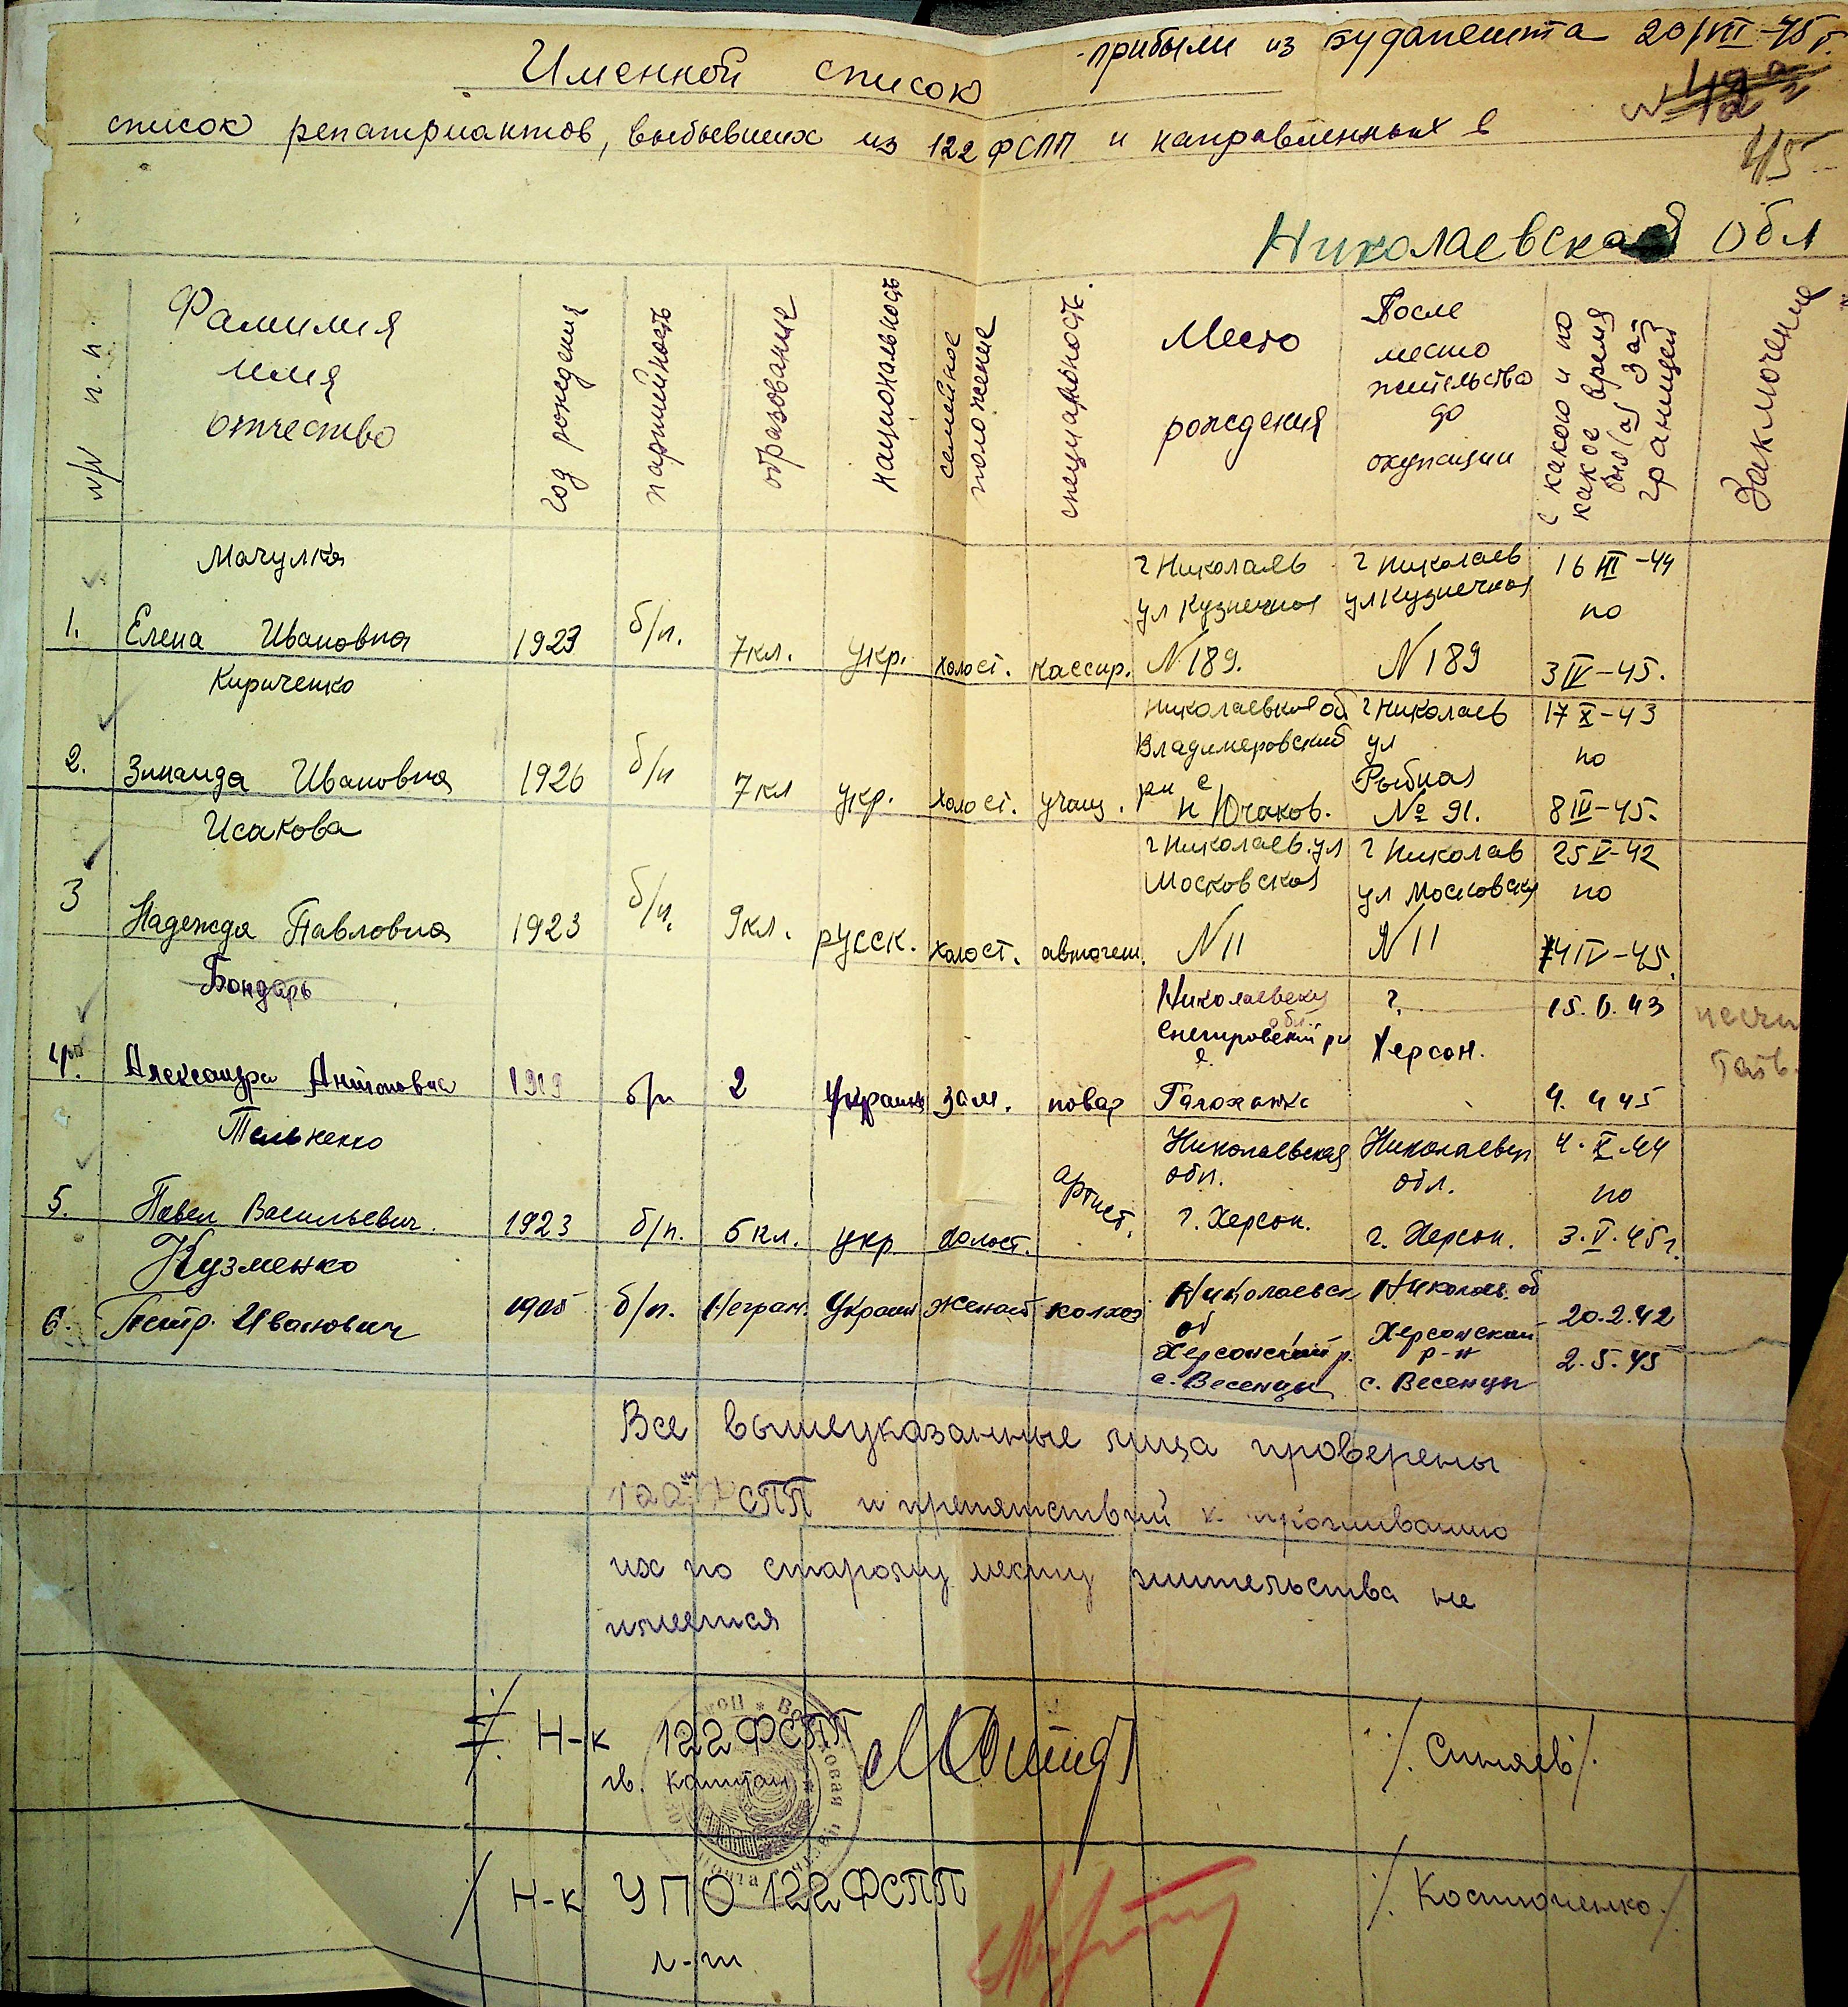 прибыли из Будапешта 20/VII-45 г.
Именной список
список репатриантов, выбывших из 122 ФСПП и направленных в
45
Николаевская Обл
N/N п.п.
Фамилия имя отчество
год рождения
партийность
образование
национальность
семейное положение
специальность.
Место рождения
После место жительство до окупации
с какого и по какое время был(а) за границей
Заключение
Мачулка г Николаевъ г Николаев 16 III-44
ул Кузнечная ул Кузнечная по
1. Елена Ивановна 1923 б/п. 7кл. укр. холост. кассир. N 189. N 189 3 IV-45.
Кириченко Николаевкой об г Николаев 17 X-43
Владимеровский ул по
2. Зинаида Ивановна 1926 б/п 7кл укр. холост. учащ. рн с Рыбная
№ 91. 8 IV-45.
Исакова г Николаев. ул г Николав 25 V-42
Московская ул Московску по
3 Надежда Павловна 1923 б/п. 9кл. русск. холост. N 11 N 11 4 IV-45.
Бондарь Николаевску обл. ? 15. V. 43
Снегировский рн Херсон.
4. Александра Антоновна 1919 б/п 2 украинк зам. повар 4. 4 45
Павел Васильевич. Николаевская обл. Николаевск обл. 4. X-44
по
5. 1923 б/п. 6 кл. укр холост. артист. г. Херсон. г. Херсон. 3. V. 45 г.
Кузменко Николаевск об Николаев. об
6. Петр. Иванович 1905 б/п. Неграм. Украин женат колхоз Херсонский р. Херсонский р-н 20.2.42
с. Весенцы с. Весенцы 2.5.45
Все вышеуказанные лица проверены
122 ФСПП и препятствий к проживанию
их по старому месту жительства не
имеется
Н-к 122 ФСПП /Синяев/.
гв. Капитан
Н-к УПО 122 ФСПП /Костюченко./
л-т